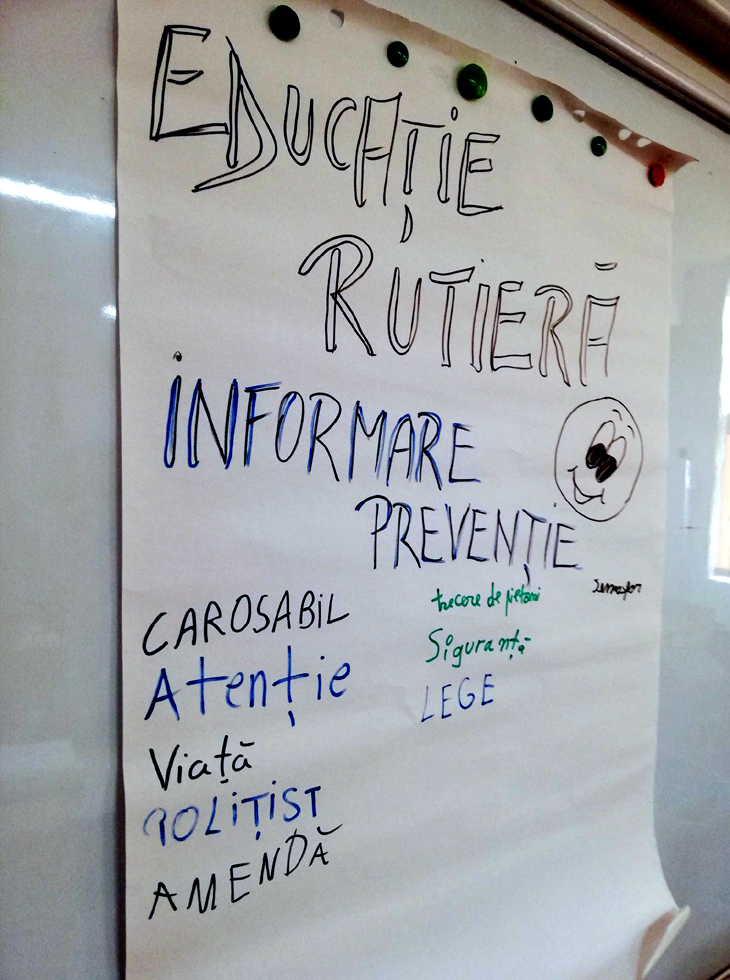 EDUCAȚIE
RUTIERĂ
INFORMARE
PREVENȚIE
CAROSABIL
Atenție
Viață
POLIȚIST
AMENDĂ
trecere de pietoni
Siguranță
LEGE
semafor